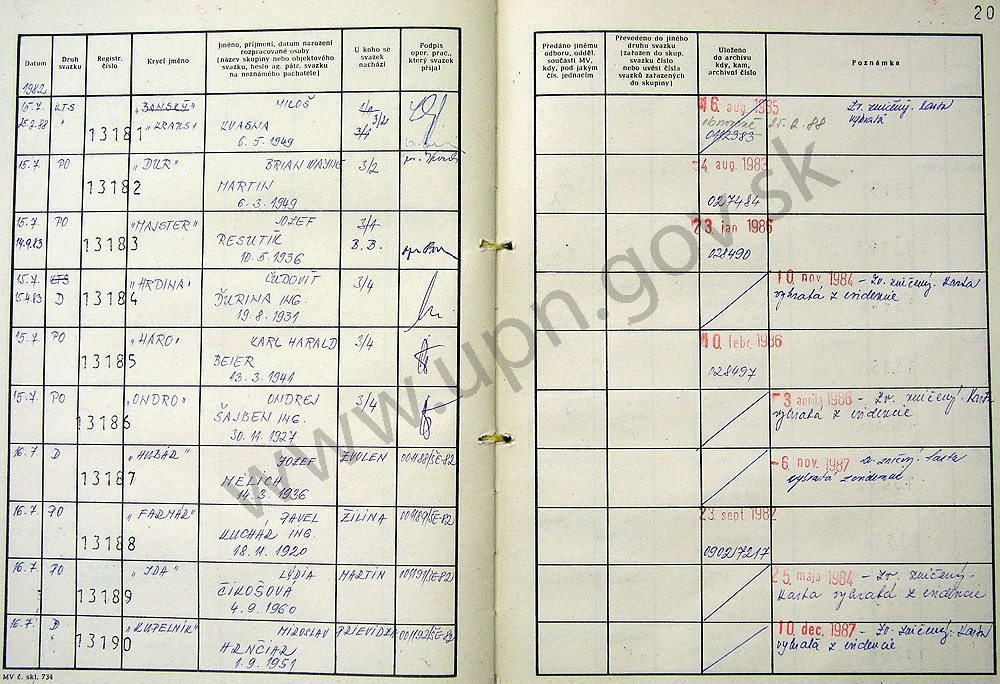 20
Datum
Druh svazku
Registr. číslo
Krycí jméno
Jméno, příjmení, datum narození rozpracované osoby
(název skupiny nebo objektového svazku, heslo ag. pátr. svazku na neznámého pachatele)
U koho se svazek nachází
Podpis oper. prac., který svazek přijal
Předáno jinému odboru, odděl. součásti MV, kdy, pod jakým čís. jednacím
Převedeno do jiného druhu svazku (zařazen do skup. svazku číslo nebo uvést čísla svazků zařazených do skupiny)
Uloženo do archivu kdy, kam, archivní číslo
Poznámka
1982
15.7. KTS 13181 MILOŠ 3/2
25.2.88 " KVASNA 3/4
6.5.1949
16. aug. 1985 Zv. zničený. Karta
obnovené 25.2.88 vybratá
15.7. PO 13182 "DUR" BRIAN WAYNE 3/2
MARTIN
6.3.1949
-4 aug. 1983
027484
15.7. PO 13183 "MAJSTER" JOZEF 3/4
14.9.83 PESUTÍK B.B.
10.5.1936
23. jan. 1986
028490
15.7. KTS 13184 "HRDINA" ĽUDOVÍT 3/4
15.4.83 D ĎURINA ING.
19.8.1931
10. nov. 1984 - Zv. zničený. Karta
vybratá z evidencie
15.7. PO 13185 "HARO" KARL HARALD 3/4
BEIER
13.3.1941
10. febr. 1986
028497
15.7. PO 13186 "ONDRO" ONDREJ 3/4
ŠAJBEN ING.
30.11.1927
-3. apríla 1986 - Zv. zničený. Karta
vybratá z evidencie
16.7. D 13187 "HUBÁR" JOZEF ZVOLEN 001188/ŠE-82
MELICH
14.3.1936
-6. nov. 1987 Zv. zničený. Karta
vybratá z evidencie
16.7. PO 13188 "FARMÁR" PAVEL ŽILINA 001189/ŠE-82
KUCHÁR ING.
18.11.1920
23. sept. 1982
090217217
16.7. PO 13189 "IDA" LÝDIA MARTIN 001191/ŠE-82
ČIKOŠOVÁ
4.9.1960
25. mája 1984 - Zv. zničený.
Karta vybratá z evidencie
16.7. D 13190 "KUPELNÍK" MIROSLAV PRIEVIDZA 001192/ŠE-82
HRNČIAR
1.9.1951
10. dec. 1987 - Zv. zničený. Karta
vybratá z evidencie
MV č. skl. 734
www.upn.gov.sk